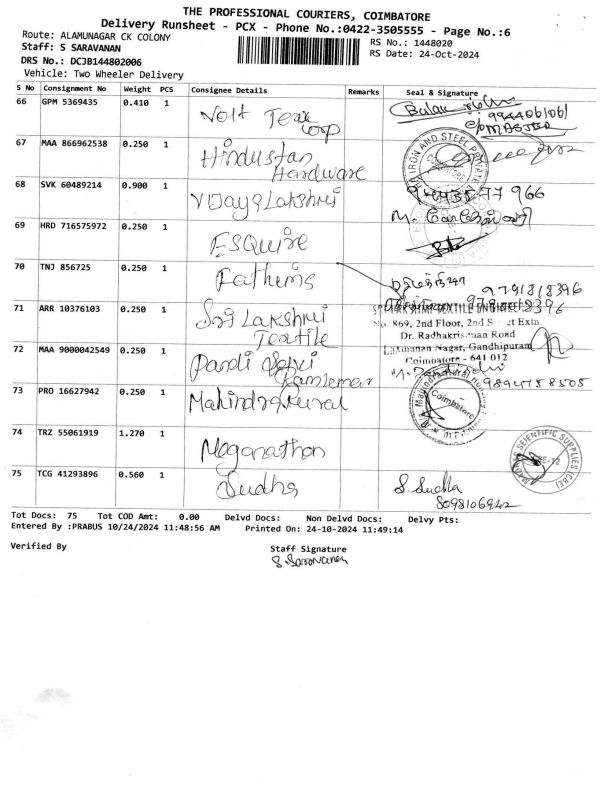 THE PROFESSIONAL COURIERS, COIMBATORE
Delivery Runsheet - PCX - Phone No.:0422-3505555 - Page No.:6
Route: ALAMUNAGAR CK COLONY
RS No.: 1448020
Staff: S SARAVANAN
RS Date: 24-Oct-2024
DRS No.: DCJB144802006
Vehicle: Two Wheeler Delivery
S No Consignment No Weight PCS Consignee Details Remarks Seal & Signature
66 GPM 5369435 0.410 1 Volt Tex Corp
9944061061
67 MAA 866962538 0.250 1 Hindustan Hardware
68 SVK 60489214 0.900 1 Vijayalakshmi
966
69 HRD 716575972 0.250 1 Esquire
70 TNJ 856725 0.250 1 Fathims
9791818396
71 ARR 10376103 0.250 1 Sri Lakshmi Textile
SRI LAKSHMI TEXTILE ENGINEERS
No. 869, 2nd Floor, 2nd Extn.
Dr. Radhakrishnan Road
Laxmanan Nagar, Gandhipuram
Coimbatore - 641 012
72 MAA 9000042549 0.250 1 Pandi
9894758505
73 PRO 16627942 0.250 1 Mahindra Rural
Coimbatore
74 TRZ 55061919 1.270 1 Moganathan
SCIENTIFIC SUPPLIES (CBE)
75 TCG 41293896 0.560 1 Sudha
S. Sudha
8098106942
Tot Docs: 75 Tot COD Amt: 0.00 Delvd Docs: Non Delvd Docs: Delvy Pts:
Entered By :PRABUS 10/24/2024 11:48:56 AM Printed On: 24-10-2024 11:49:14
Verified By
Staff Signature
S. Saravanan